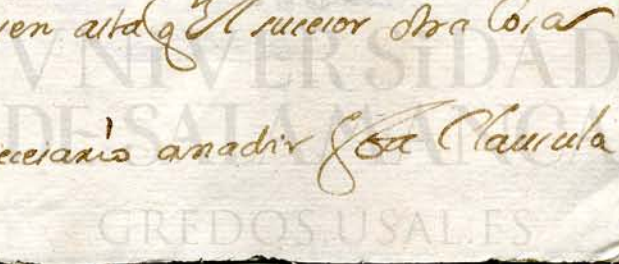 en esta q el sucesor otra cosa
VNIVERSIDAD
DE SALAMANCA
ecesario anadir Clausula
GREDOS.USAL.ES